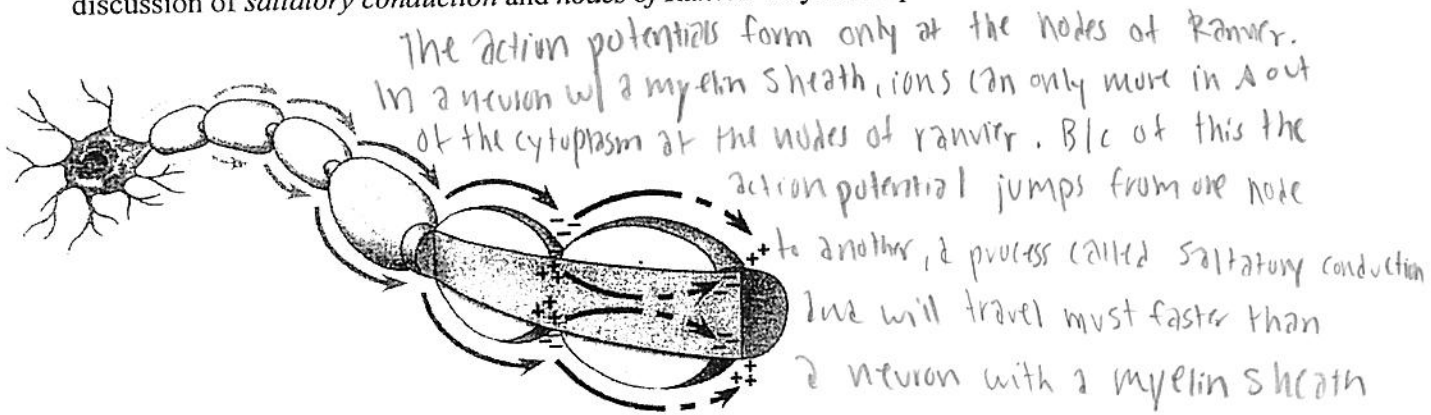 discussion of saltatory conduction and nodes of
The action potentials form only at the nodes of Ranvier.
In a neuron w/ a myelin sheath, ions can only move in & out
of the cytoplasm at the nodes of ranvier. B/c of this the
action potential jumps from one node
to another, a process called saltatory conduction
and will travel must faster than
a neuron with a myelin sheath